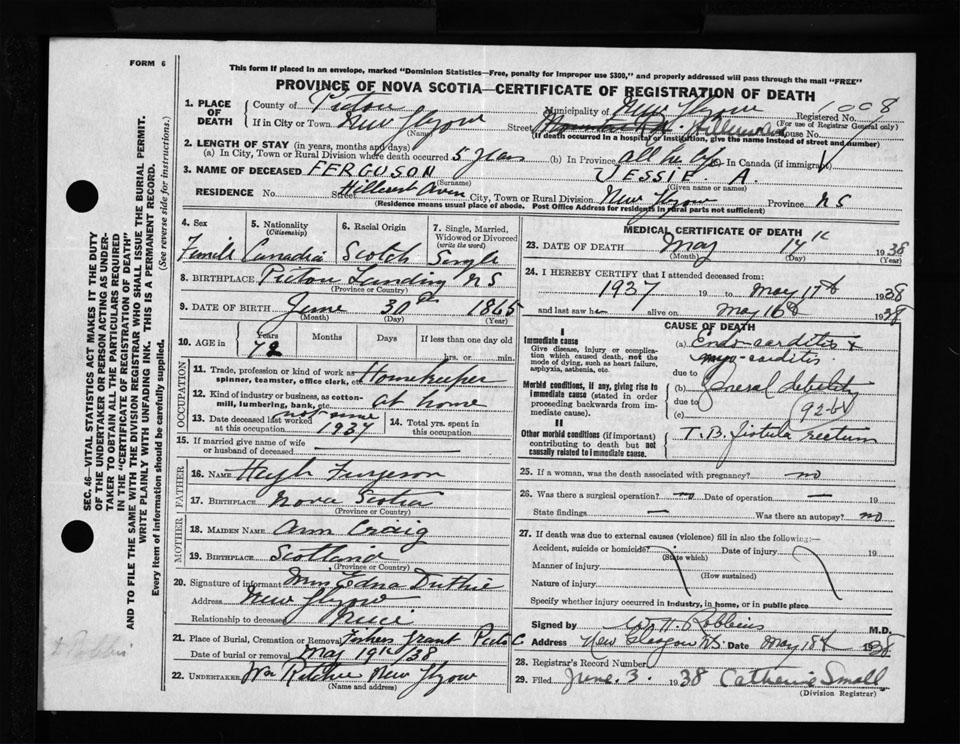 FORM 6
This form if placed in an envelope, marked "Dominion Statistics—Free, penalty for improper use $300," and properly addressed will pass through the mail "FREE"
PROVINCE OF NOVA SCOTIA—CERTIFICATE OF REGISTRATION OF DEATH
1. PLACE OF DEATH County of Pictou Municipality of New Glasgow Registered No. 1008
(For use of Registrar General only)
If in City or Town New Glasgow (Name) Street House No.
(If death occurred in a hospital or institution, give the name instead of street and number)
2. LENGTH OF STAY (in years, months and days)
(a) In City, Town or Rural Division where death occurred 5 years (b) In Province all her life In Canada (if immigrant)
3. NAME OF DECEASED FERGUSON JESSIE. A.
(Surname) (Given name or names)
RESIDENCE No. Street Hillcrest Aven City, Town or Rural Division New Glasgow Province NS
(Residence means usual place of abode. Post Office Address for residents in rural parts not sufficient)
4. Sex Female
5. Nationality (Citizenship) Canadia
6. Racial Origin Scotch
7. Single, Married, Widowed or Divorced (write the word) Single
8. BIRTHPLACE Pictou Landing NS
(Province or Country)
9. DATE OF BIRTH June 30th 1865
(Month) (Day) (Year)
10. AGE in Years 72 Months Days If less than one day old
hrs. or min.
OCCUPATION
11. Trade, profession or kind of work as spinner, teamster, office clerk, etc. Housekeeper
12. Kind of industry or business, as cotton-mill, lumbering, bank, etc. at home
13. Date deceased last worked at this occupation 1937
14. Total yrs. spent in this occupation
15. If married give name of wife or husband of deceased
FATHER
16. NAME Hugh Furgeson
17. BIRTHPLACE Nova Scotia
(Province or Country)
MOTHER
18. MAIDEN NAME Ann Craig
19. BIRTHPLACE Scotland
(Province or Country)
20. Signature of informant Mrs Edna Duthie
Address New Glasgow
Relationship to deceased Niece
21. Place of Burial, Cremation or Removal Fishers Grant Picto C.
Date of burial or removal May 19th/38
22. UNDERTAKER Wm Ritchie New Glasgow
(Name and address)
MEDICAL CERTIFICATE OF DEATH
23. DATE OF DEATH May 17th 1938
(Month) (Day) (Year)
24. I HEREBY CERTIFY that I attended deceased from:
1937 19 to May 17th 1938
and last saw h alive on May 16th 1938
CAUSE OF DEATH
I
Immediate cause
Give disease, injury or complication which caused death, not the mode of dying, such as heart failure, asphyxia, asthenia, etc.
(a) Endo-carditis & myo-carditis
due to
Morbid conditions, if any, giving rise to immediate cause (stated in order proceeding backwards from immediate cause).
(b) General debility
due to
(c) (92-b)
II
Other morbid conditions (if important) contributing to death but not causally related to immediate cause.
T.B. fistula rectum
25. If a woman, was the death associated with pregnancy? no
26. Was there a surgical operation? no Date of operation — 19
State findings — Was there an autopsy? no
27. If death was due to external causes (violence) fill in also the following:—
Accident, suicide or homicide? Date of injury 19
(State which)
Manner of injury
(How sustained)
Nature of injury
Specify whether injury occurred in industry, in home, or in public place
Signed by W. H. Robbins M.D.
Address New Glasgow NS. Date May 18th 1938
28. Registrar's Record Number
29. Filed June. 3. 1938 Catherine Small
(Division Registrar)
SEC. 46—VITAL STATISTICS ACT MAKES IT THE DUTY OF THE UNDERTAKER OR PERSON ACTING AS UNDERTAKER TO OBTAIN ALL THE PARTICULARS REQUIRED IN THE "CERTIFICATE OF REGISTRATION OF DEATH" AND TO FILE THE SAME WITH THE DIVISION REGISTRAR WHO SHALL ISSUE THE BURIAL PERMIT.
WRITE PLAINLY WITH UNFADING INK. THIS IS A PERMANENT RECORD.
Every item of information should be carefully supplied. (See reverse side for instructions.)